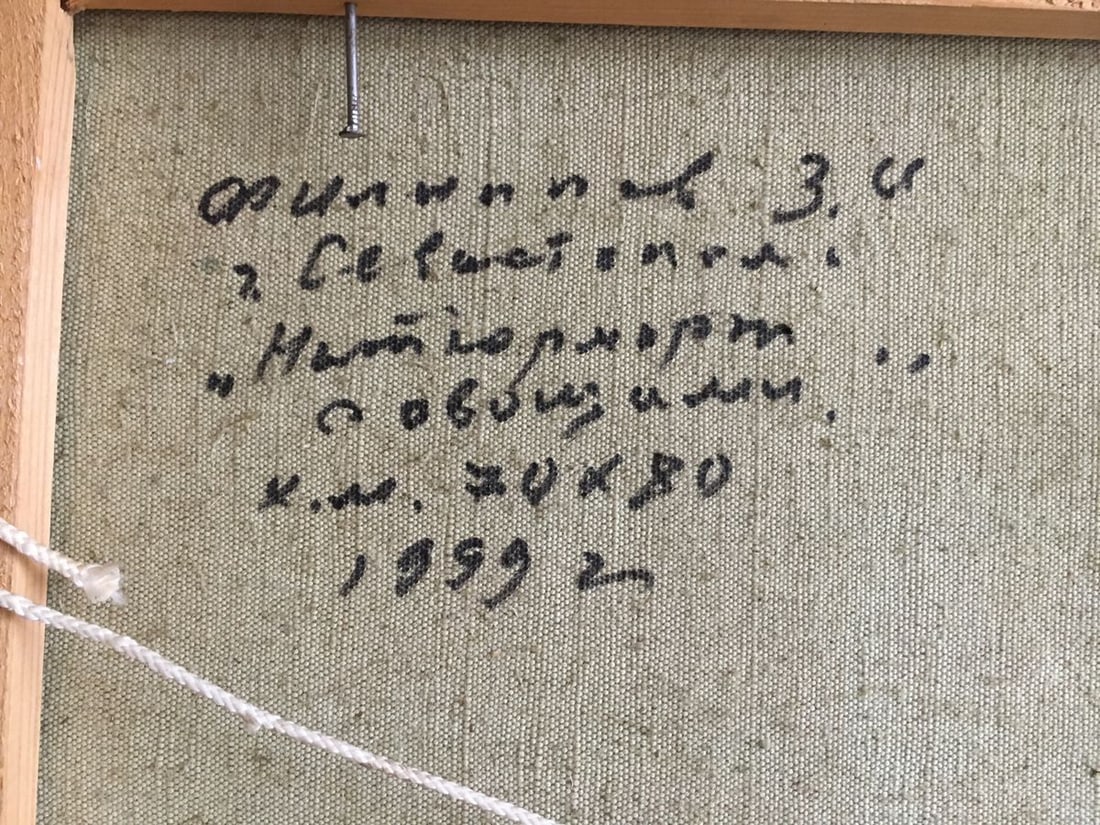 Филиппов З.И
г. Севастополь
„Натюрморт
с овощами"
х.м. 70х80
1999 г